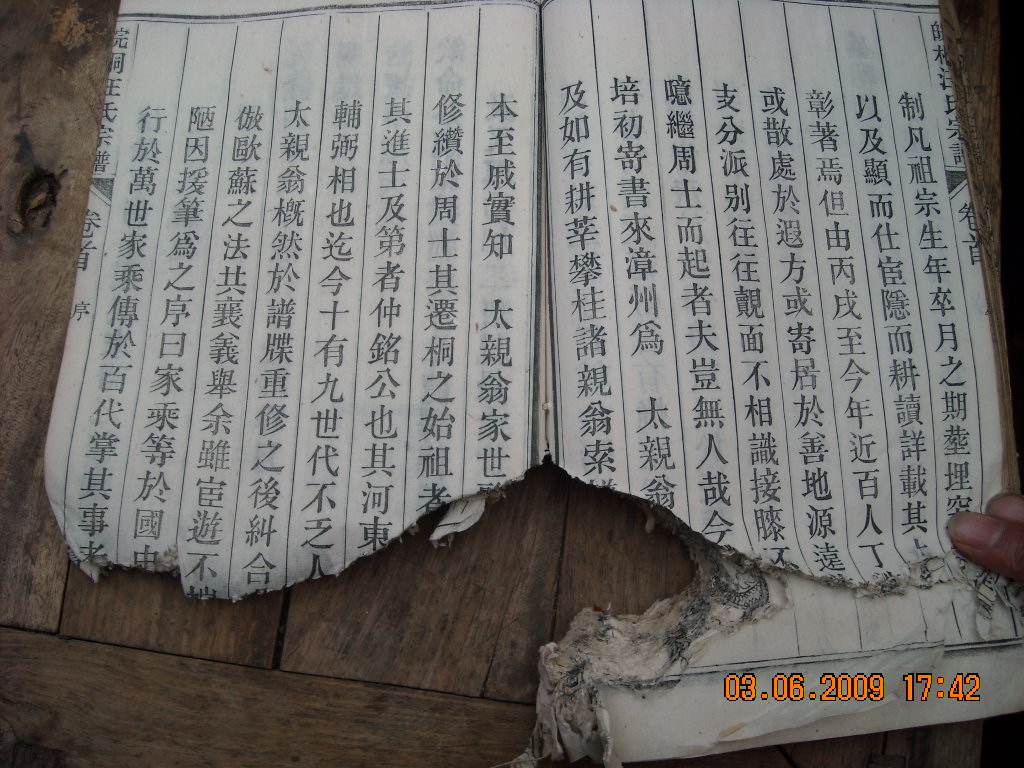 制凡祖宗生年卒月之期塟埋
以及顯而仕宦隱而耕讀詳載其
彰著焉但由丙戌至今年近百人丁
或散處於遐方或寄居於善地源遠
支分派别往往覿面不相識接膝不
噫繼周士而起者夫豈無人哉今
培初寄書來漳州爲 太親翁
及如有耕莘攀桂諸親翁索
本至戚實知 太親翁家世
修纘於周士其遷桐之始祖者
其進士及第者仲銘公也其河東
輔弼相也迄今十有九世代不乏人
太親翁槪然於譜牒重修之後糾合
倣歐蘇之法共襄義舉余雖宦遊不
陋因援筆爲之序曰家乘等於國
行於萬世家乘傳於百代掌其事者
皖桐汪氏宗譜 卷首 序
皖桐汪氏宗譜 卷首
03.06.2009 17:42